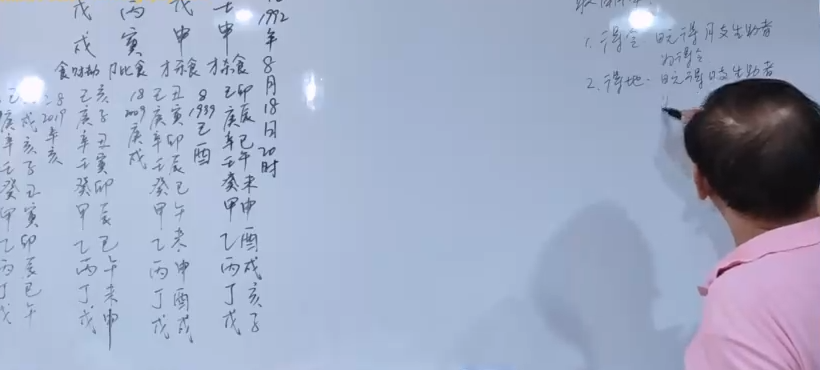 1992年8月18日20时
壬
申
才杀食
己庚辛壬癸甲乙丙丁戊
卯辰巳午未申酉戌亥子
戊
申
才杀食
8
1939
己
酉
己庚辛壬癸甲乙丙丁戊
丑寅卯辰巳午未申酉戌
丙
寅
卩比食
18
2009
庚
戌
戊
戌
食财劫
己庚辛壬癸甲乙丙丁戊
亥子丑寅卯辰巳午未申
28
2019
辛
亥
己庚辛壬癸甲乙丙丁戊
戌亥子丑寅卯辰巳午
1. 得令 日元得月支生助者
为得令
2. 得地 日元得日支生助者